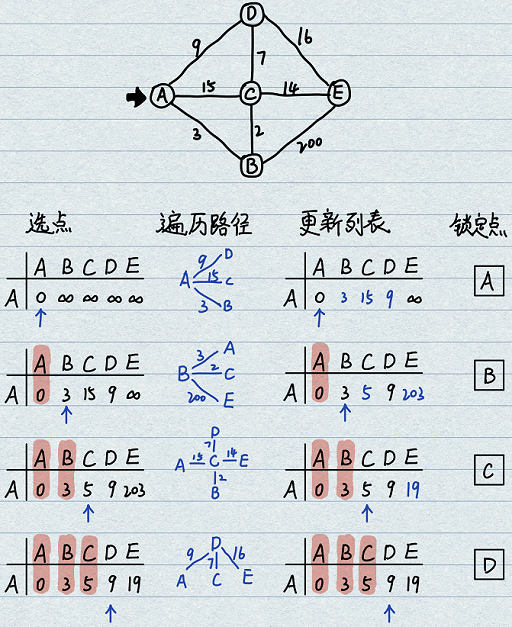 D
9
16
7
A 15 C 14 E
3
2
200
B
选点 遍历路径 更新列表 锁定点
A B C D E
A 0 ∞ ∞ ∞ ∞
A 9 D 15 C 3 B
A B C D E
A 0 3 15 9 ∞
A
A B C D E
A 0 3 15 9 ∞
B 3 A 2 C 200 E
A B C D E
A 0 3 5 9 203
B
A B C D E
A 0 3 5 9 203
D
7
A 15 C 14 E
12
B
A B C D E
A 0 3 5 9 19
C
A B C D E
A 0 3 5 9 19
D
9 7 16
A C E
A B C D E
A 0 3 5 9 19
D